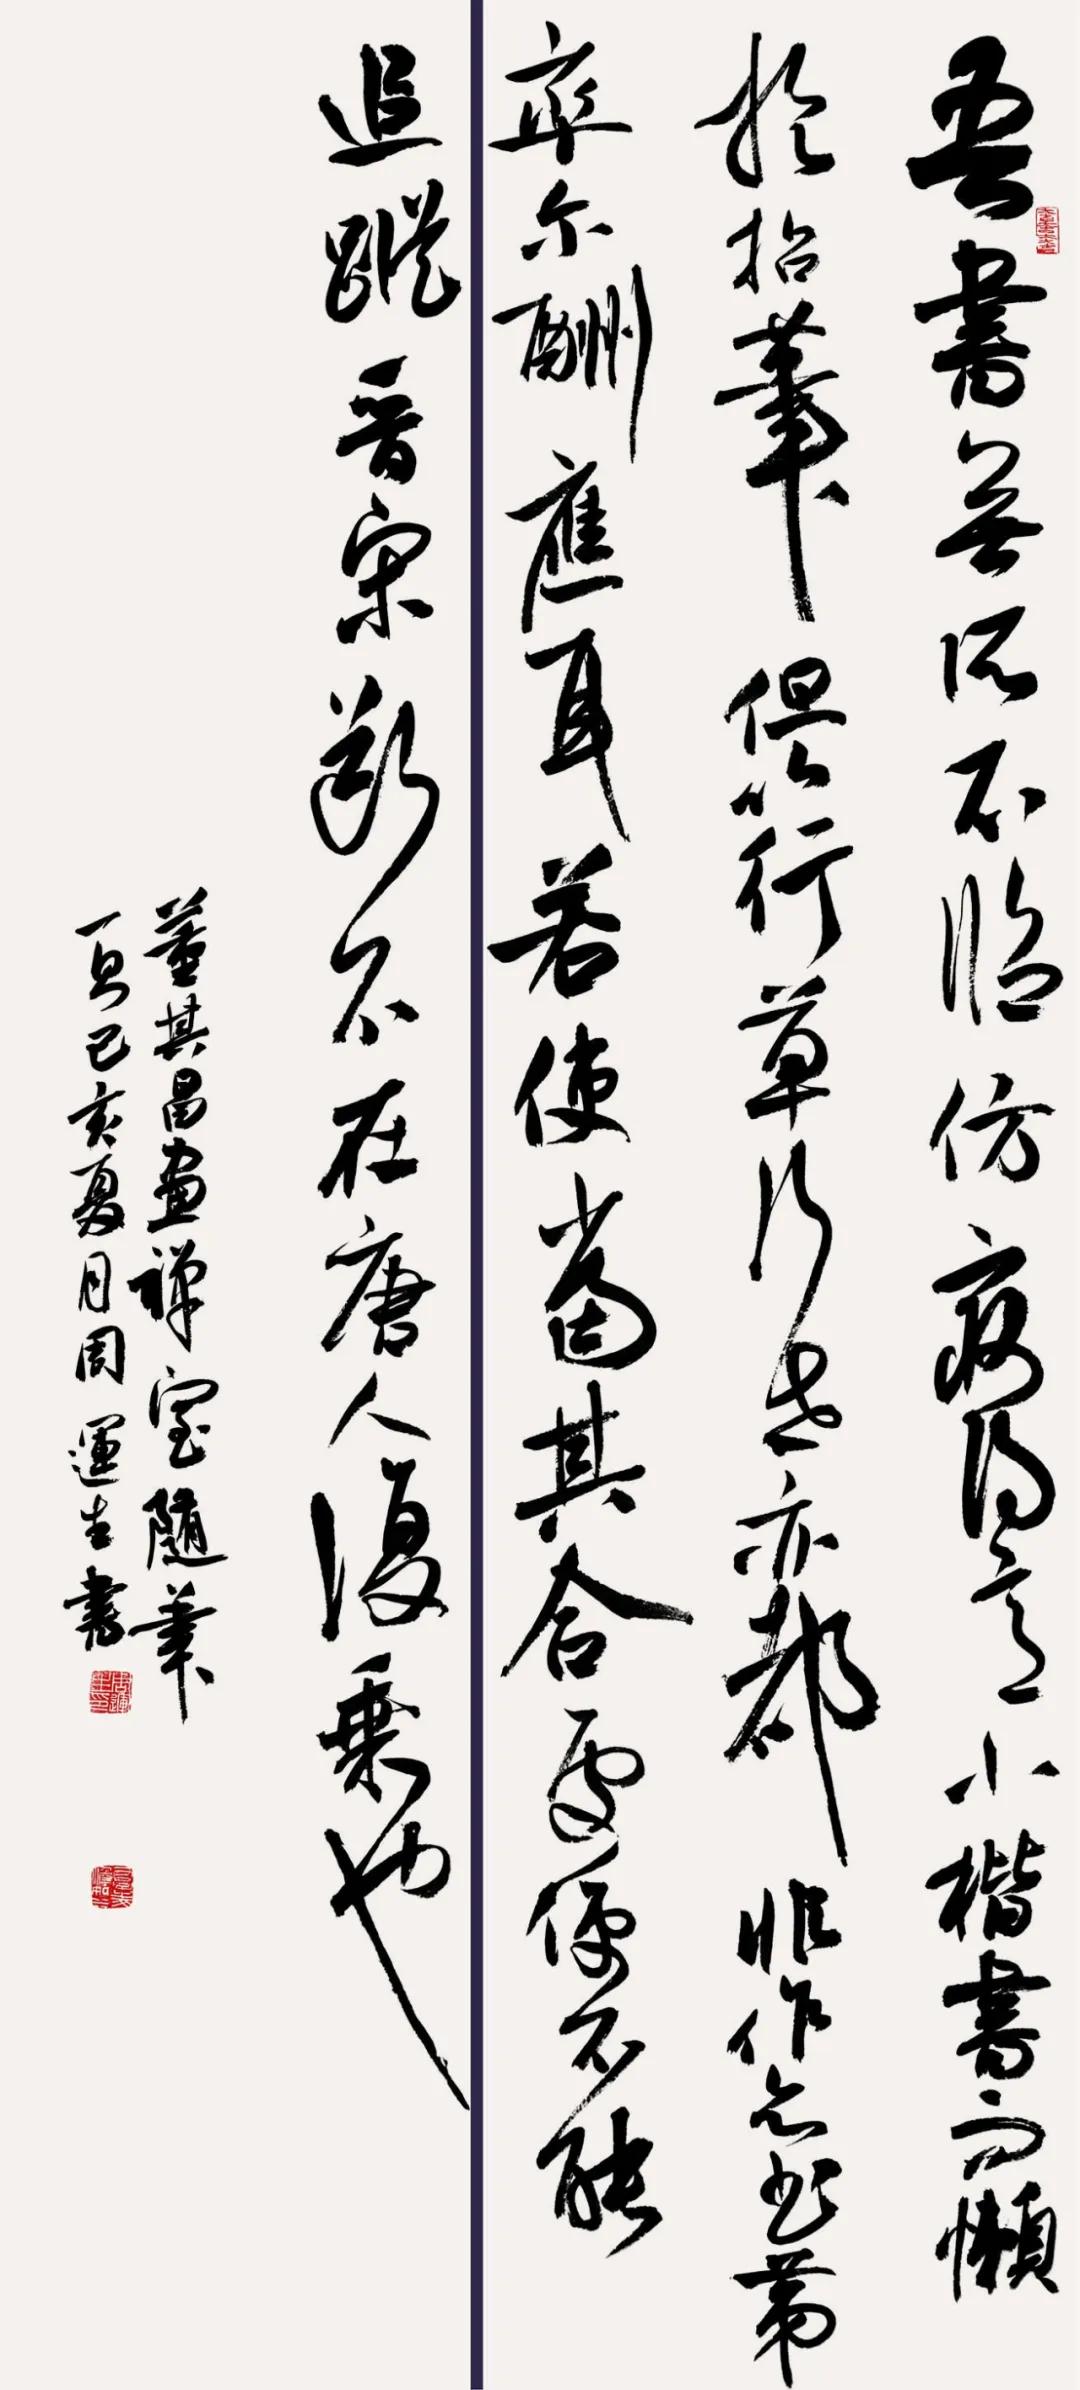 吾書無所不臨仿最得意小楷書而懶
於拈筆但以行草行世亦都非作意书第
率尔酬應耳若使當其合處便不能
追蹤晋宋断不在唐人後乘也
董其昌畫禅室隨筆
一則己亥夏月周運生書